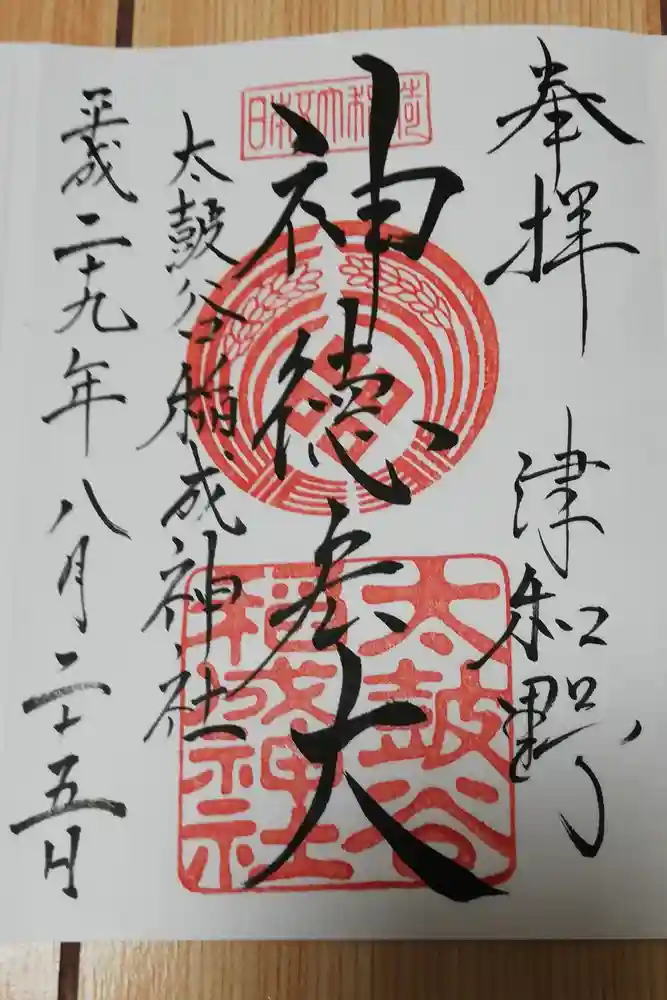 奉拝 津和野
日本五大稲荷
神徳宏大
太鼓谷
稲成神社
太鼓谷稲成神社
平成二十九年八月二十五日